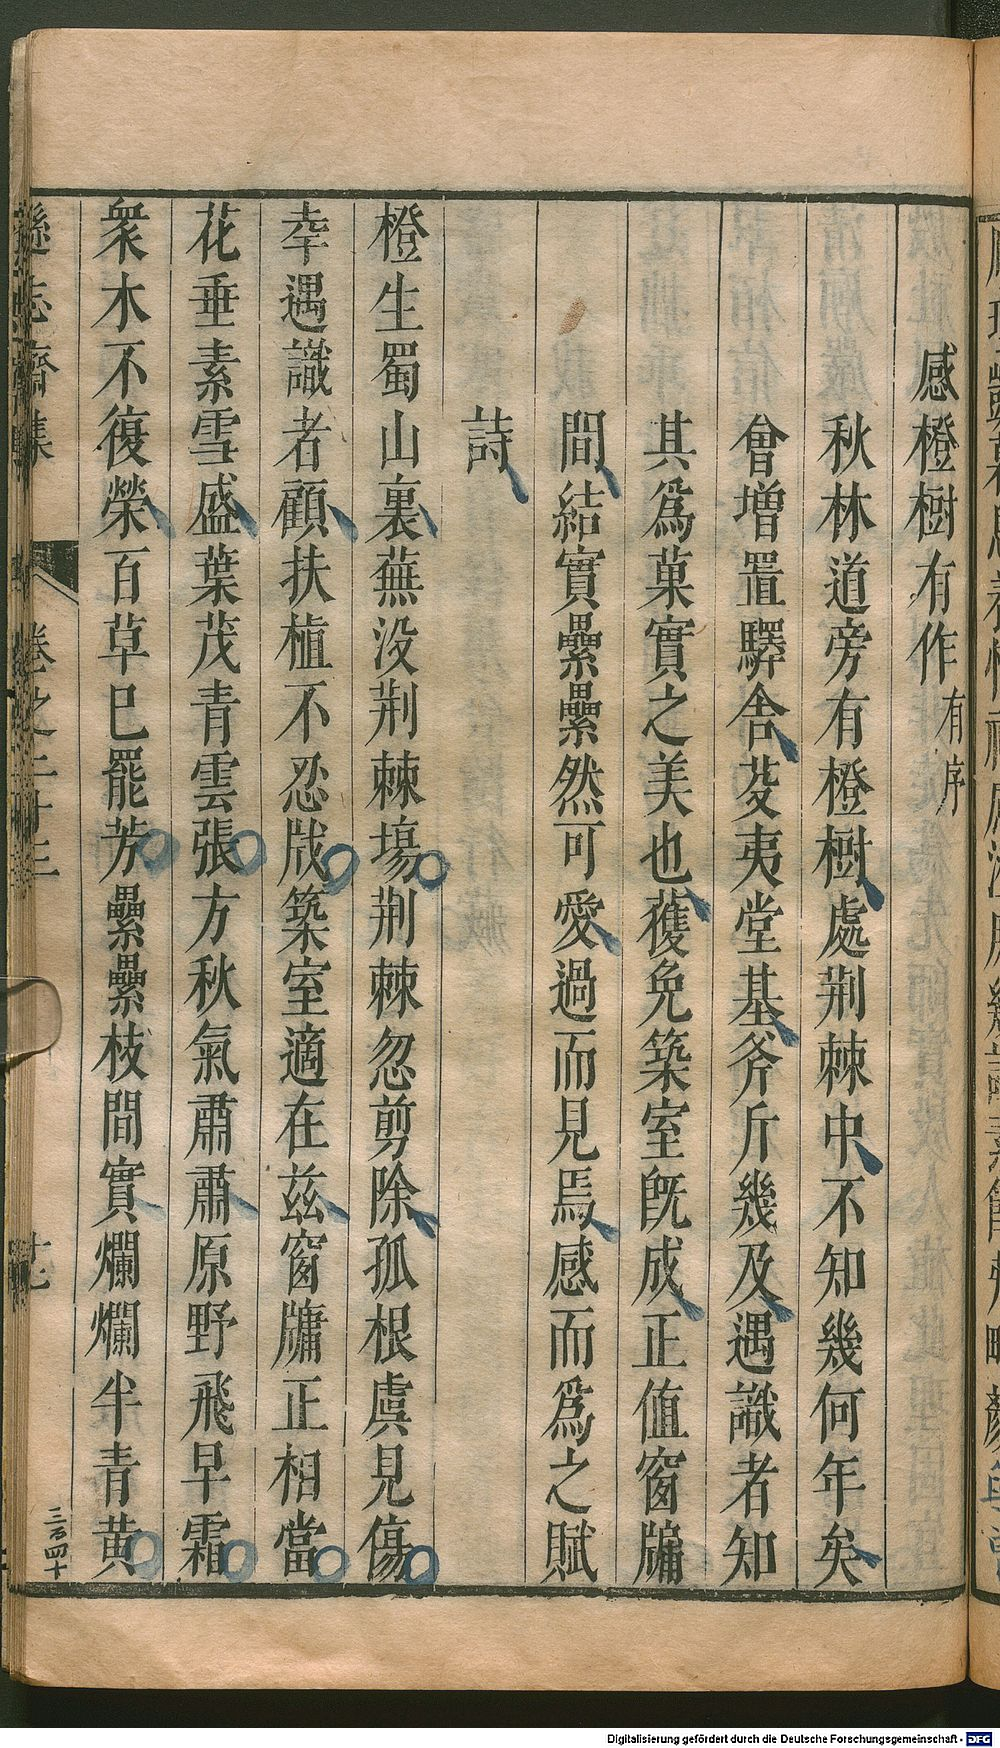 感橙樹有作有序
秋林道旁有橙樹處荆棘中不知幾何年矣
會增置驛舍芟夷堂基斧斤幾及遇識者知
其爲菓實之美也獲免築室旣成正值窗牖
間結實纍纍然可愛過而見焉感而爲之賦
詩
橙生蜀山裏蕪没荆棘塲荆棘忽剪除孤根虞見傷
幸遇識者顧扶植不忍戕築室適在兹窗牖正相當
花垂素雪盛葉茂青雲張方秋氣肅肅原野飛早霜
衆木不復榮百草巳罷芳纍纍枝間實爛爛半青黃
遜志齋集
卷之二十三
十七
三百四十
Digitalisierung gefördert durch die Deutsche Forschungsgemeinschaft - DFG